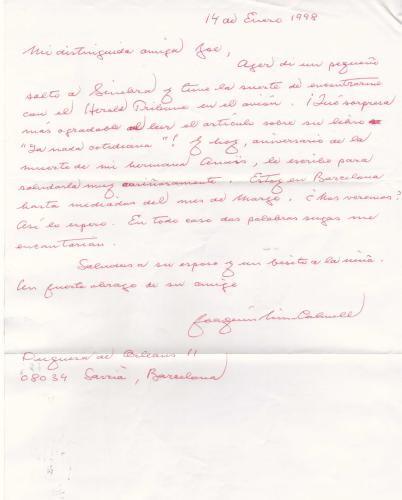 14 de Enero 1998
Mi distinguida amiga Zoe,
Ayer di un pequeño
salto a Ginebra y tuve la suerte de encontrarme
con el Herald Tribune en el avión. ¡Qué sorpresa
más agradable al leer el artículo sobre su libro
"La nada cotidiana"! Y hoy, aniversario de la
muerte de mi hermana Anaïs, le escribo para
saludarla muy cariñosamente. Estoy en Barcelona
hasta mediados del mes de Marzo. ¿Nos veremos?
Así lo espero. En todo caso dos palabras suyas me
encantarían.
Saludos a su esposo y un besito a la niña.
Un fuerte abrazo de su amigo
Joaquín Nin-Culmell
Duquesa de Orleans 11
08034 Sarrià, Barcelona